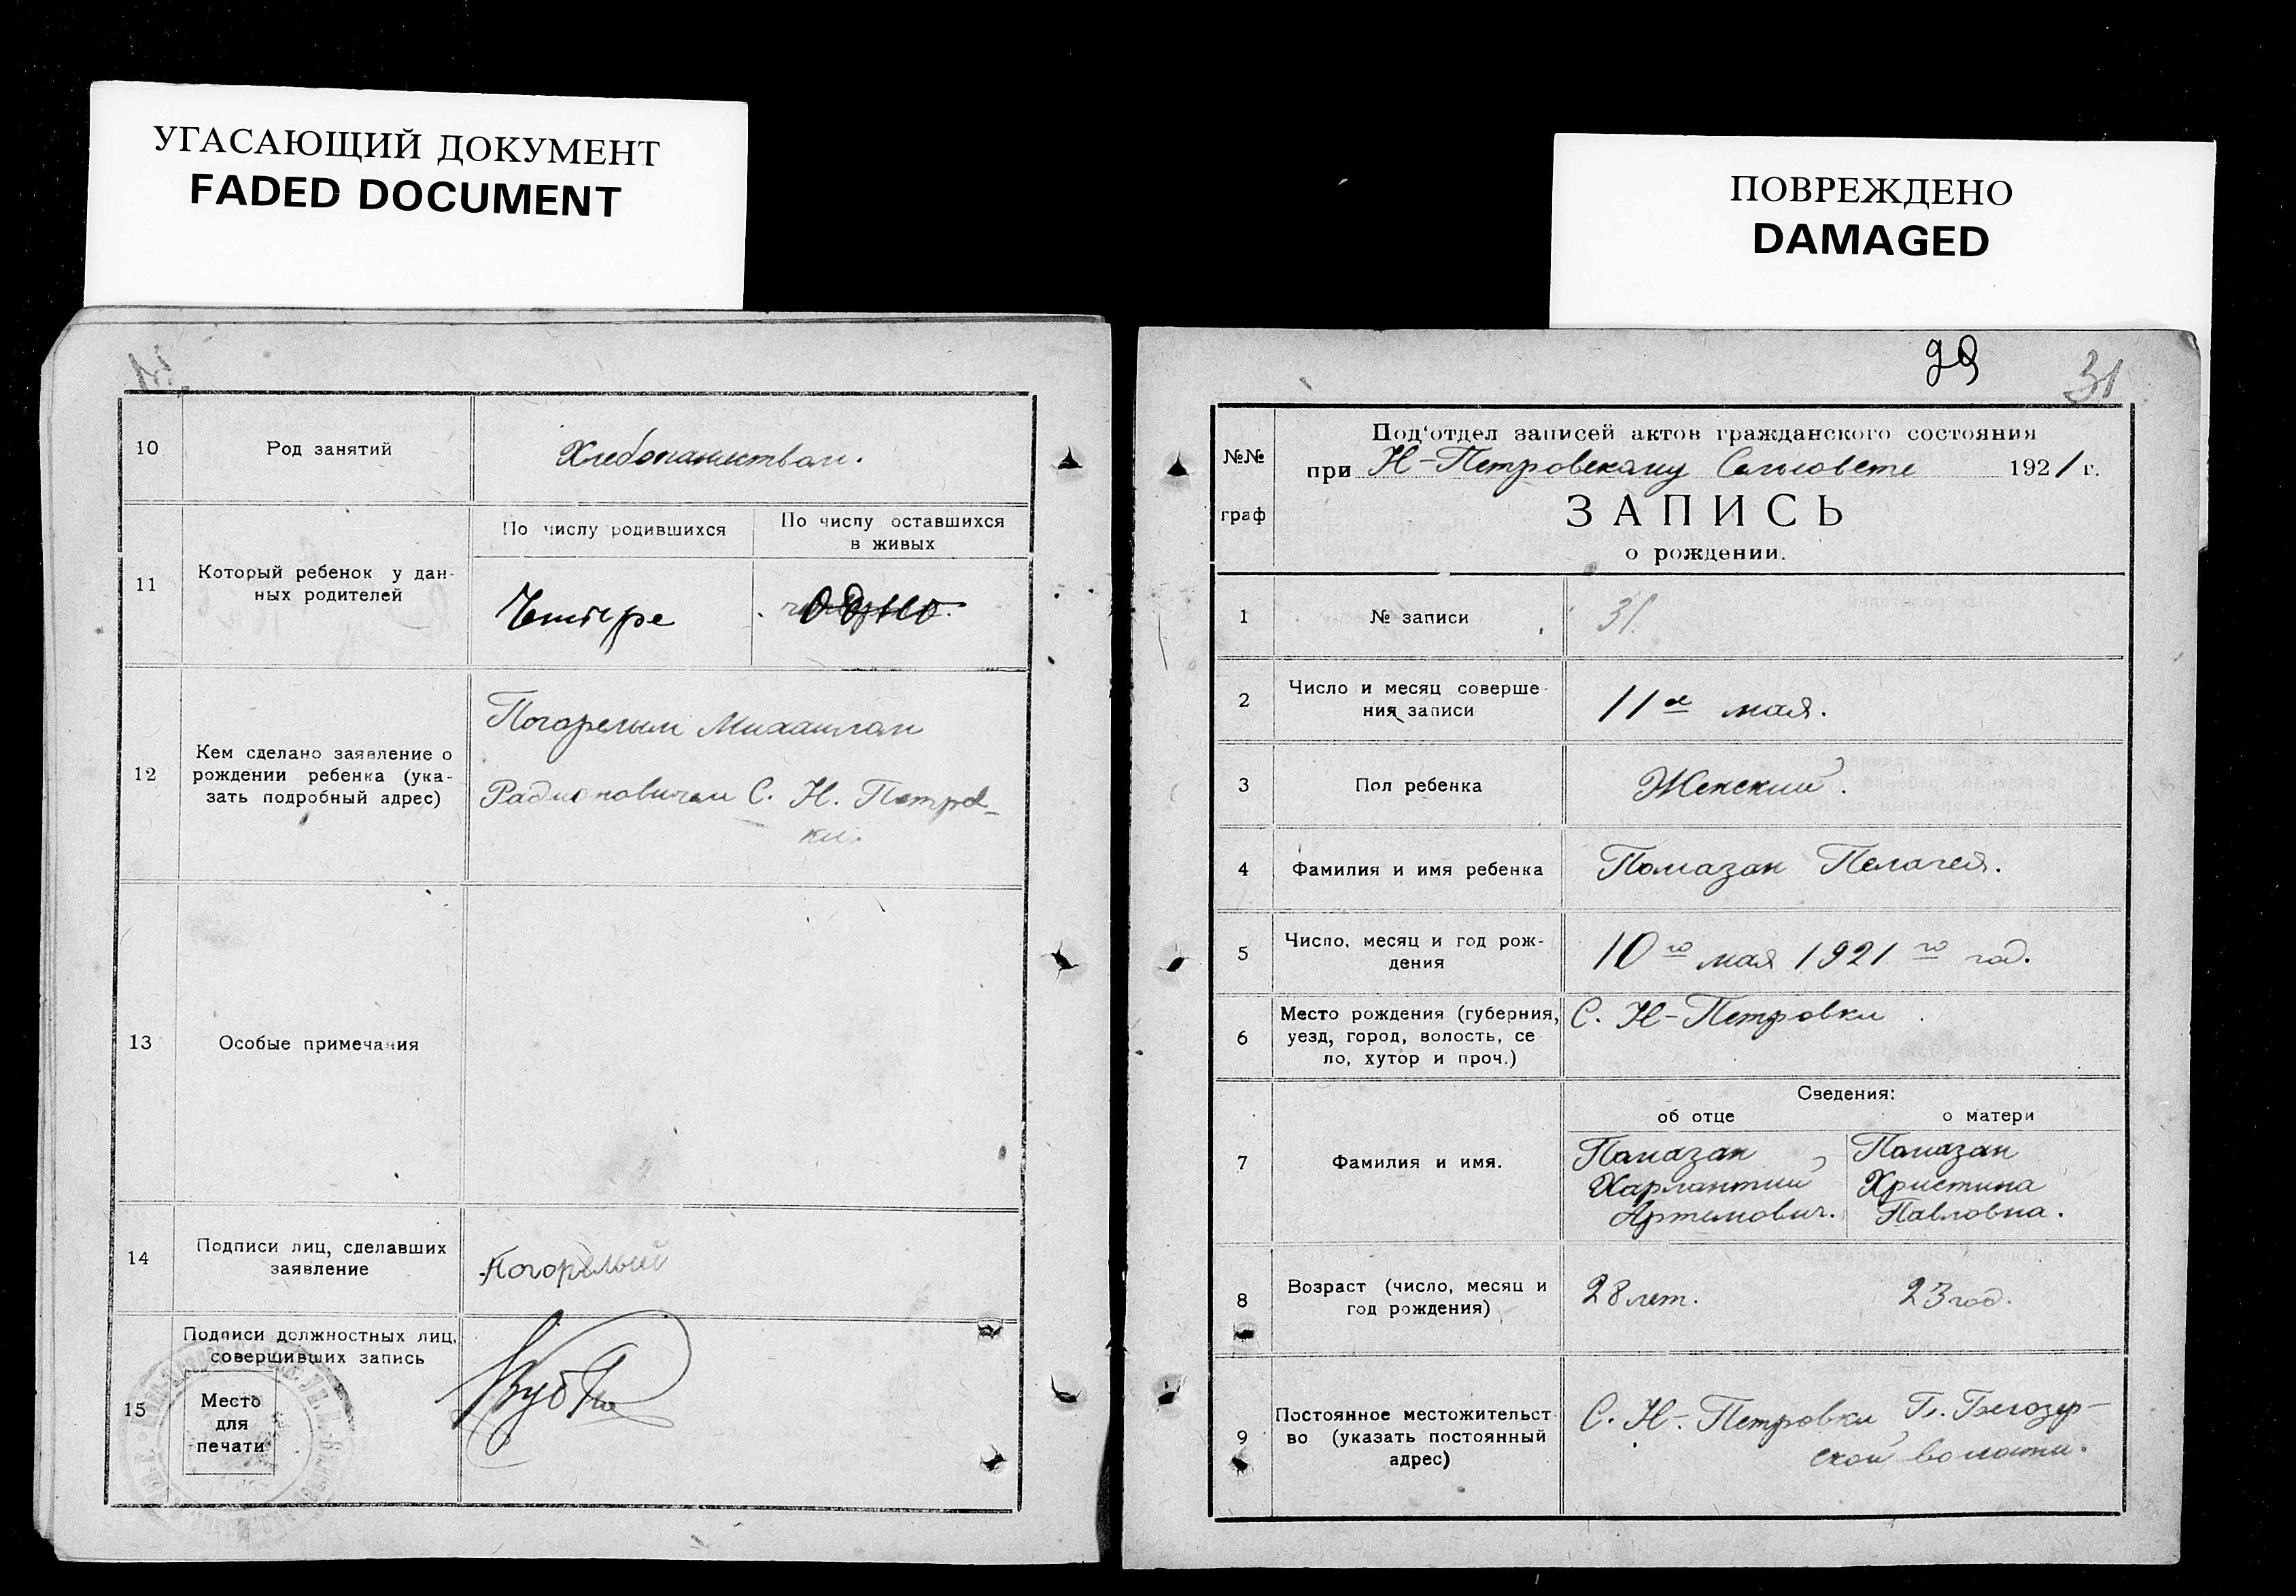 УГАСАЮЩИЙ ДОКУМЕНТ
FADED DOCUMENT
10
Род занятий
Хлебопашеством.
11
Который ребенок у дан-
ных родителей
По числу родившихся
По числу оставшихся
в живых
Четыре
одно
12
Кем сделано заявление о
рождении ребенка (ука-
зать подробный адрес)
Погорелым Михаилом
Радионовичем С. Н. Петров-
ки.
13
Особые примечания
14
Подписи лиц, сделавших
заявление
Погорелый
15
Подписи должностных лиц,
совершивших запись
Место
для
печати
ПОВРЕЖДЕНО
DAMAGED
29
31
№№
граф
Под‘отдел записей актов гражданского состояния
при Н-Петровскому Сельсовете 1921 г.
ЗАПИСЬ
о рождении.
1
№ записи
31.
2
Число и месяц соверше-
ния записи
11го мая.
3
Пол ребенка
Женский.
4
Фамилия и имя ребенка
Помазан Пелагея.
5
Число, месяц и год рож-
дения
10го мая 1921го год.
6
Место рождения (губерния,
уезд, город, волость, се
ло, хутор и проч.)
С. Н-Петровки
7
Фамилия и имя.
Сведения:
об отце
о матери
Помазан
Харлантий
Артемович.
Помазан
Христина
Павловна.
8
Возраст (число, месяц и
год рождения)
28 лет.
23 год.
9
Постоянное местожительст-
во (указать постоянный
адрес)
С. Н-Петровки
ской волости.